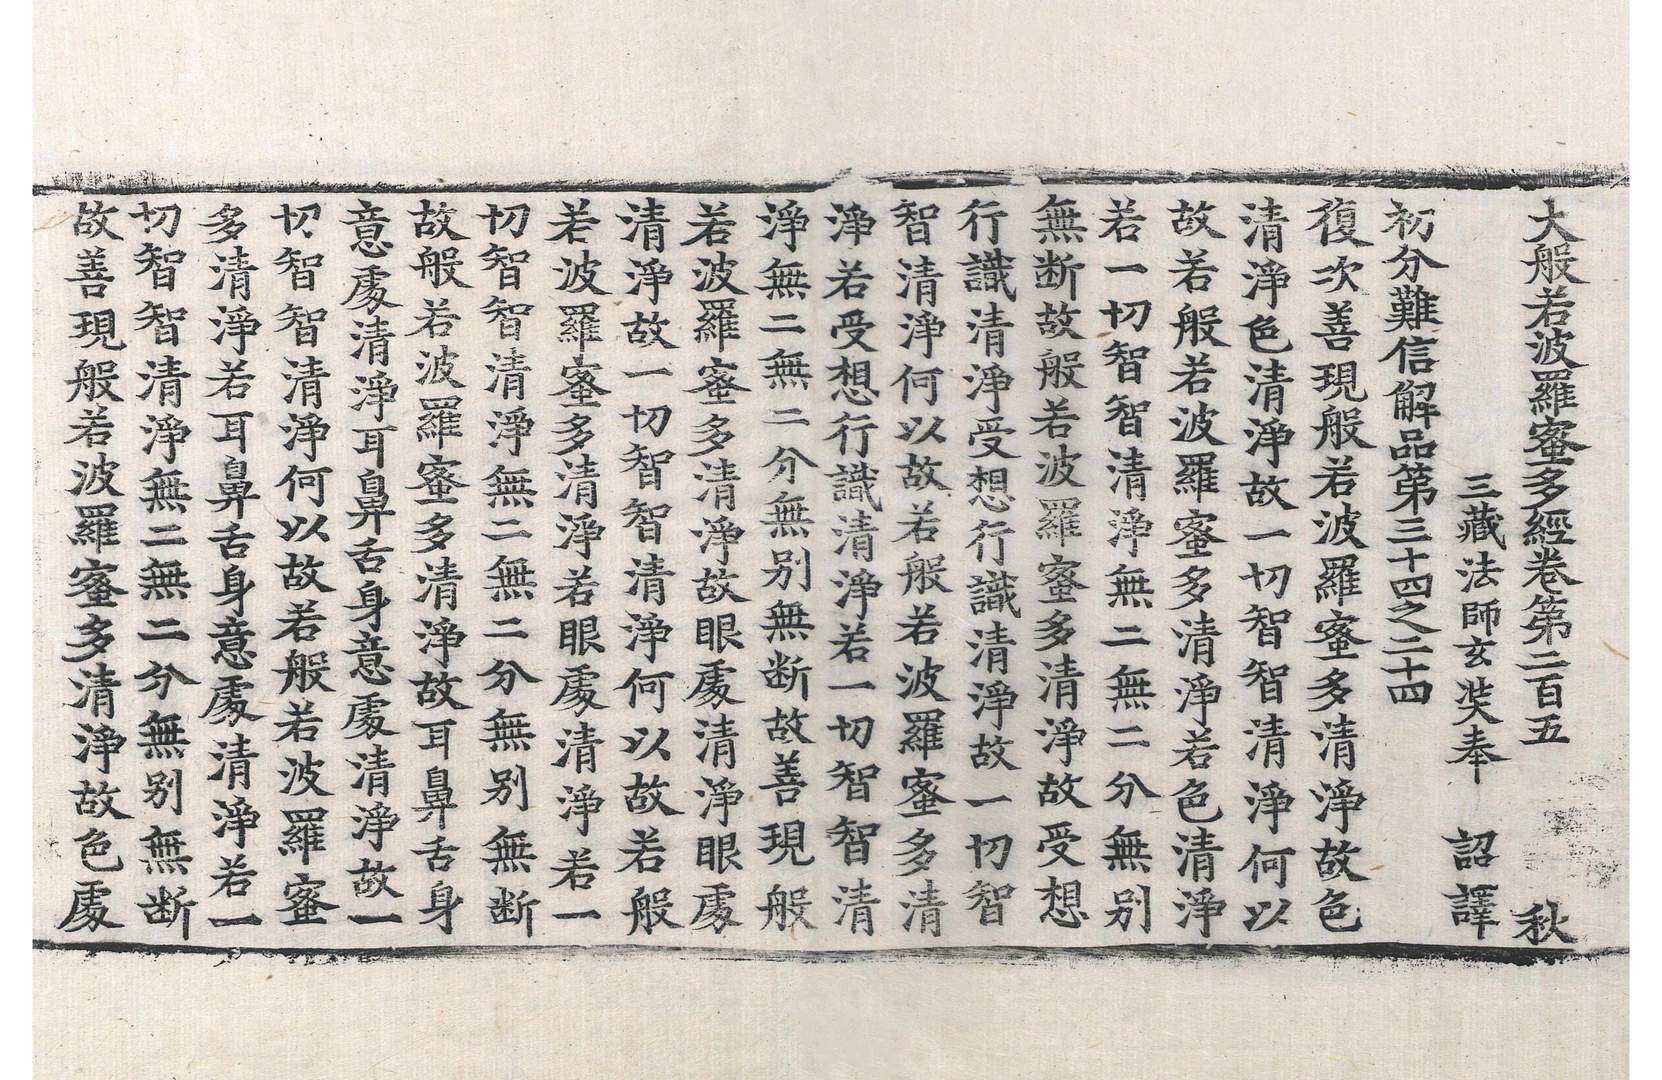 大般若波羅蜜多經卷第二百五 秋
三藏法師玄奘奉 詔譯
初分難信解品第三十四之二十四
復次善現般若波羅蜜多清淨故色
清淨色清淨故一切智智清淨何以
故若般若波羅蜜多清淨若色清淨
若一切智智清淨無二無二分無别
無断故般若波羅蜜多清淨故受想
行識清淨受想行識清淨故一切智
智清淨何以故若般若波羅蜜多清
淨若受想行識清淨若一切智智清
淨無二無二分無别無断故善現般
若波羅蜜多清淨故眼處清淨眼處
清淨故一切智智清淨何以故若般
若波羅蜜多清淨若眼處清淨若一
切智智清淨無二無二分無别無断
故般若波羅蜜多清淨故耳鼻舌身
意處清淨耳鼻舌身意處清淨故一
切智智清淨何以故若般若波羅蜜
多清淨若耳鼻舌身意處清淨若一
切智智清淨無二無二分無别無断
故善現般若波羅蜜多清淨故色處